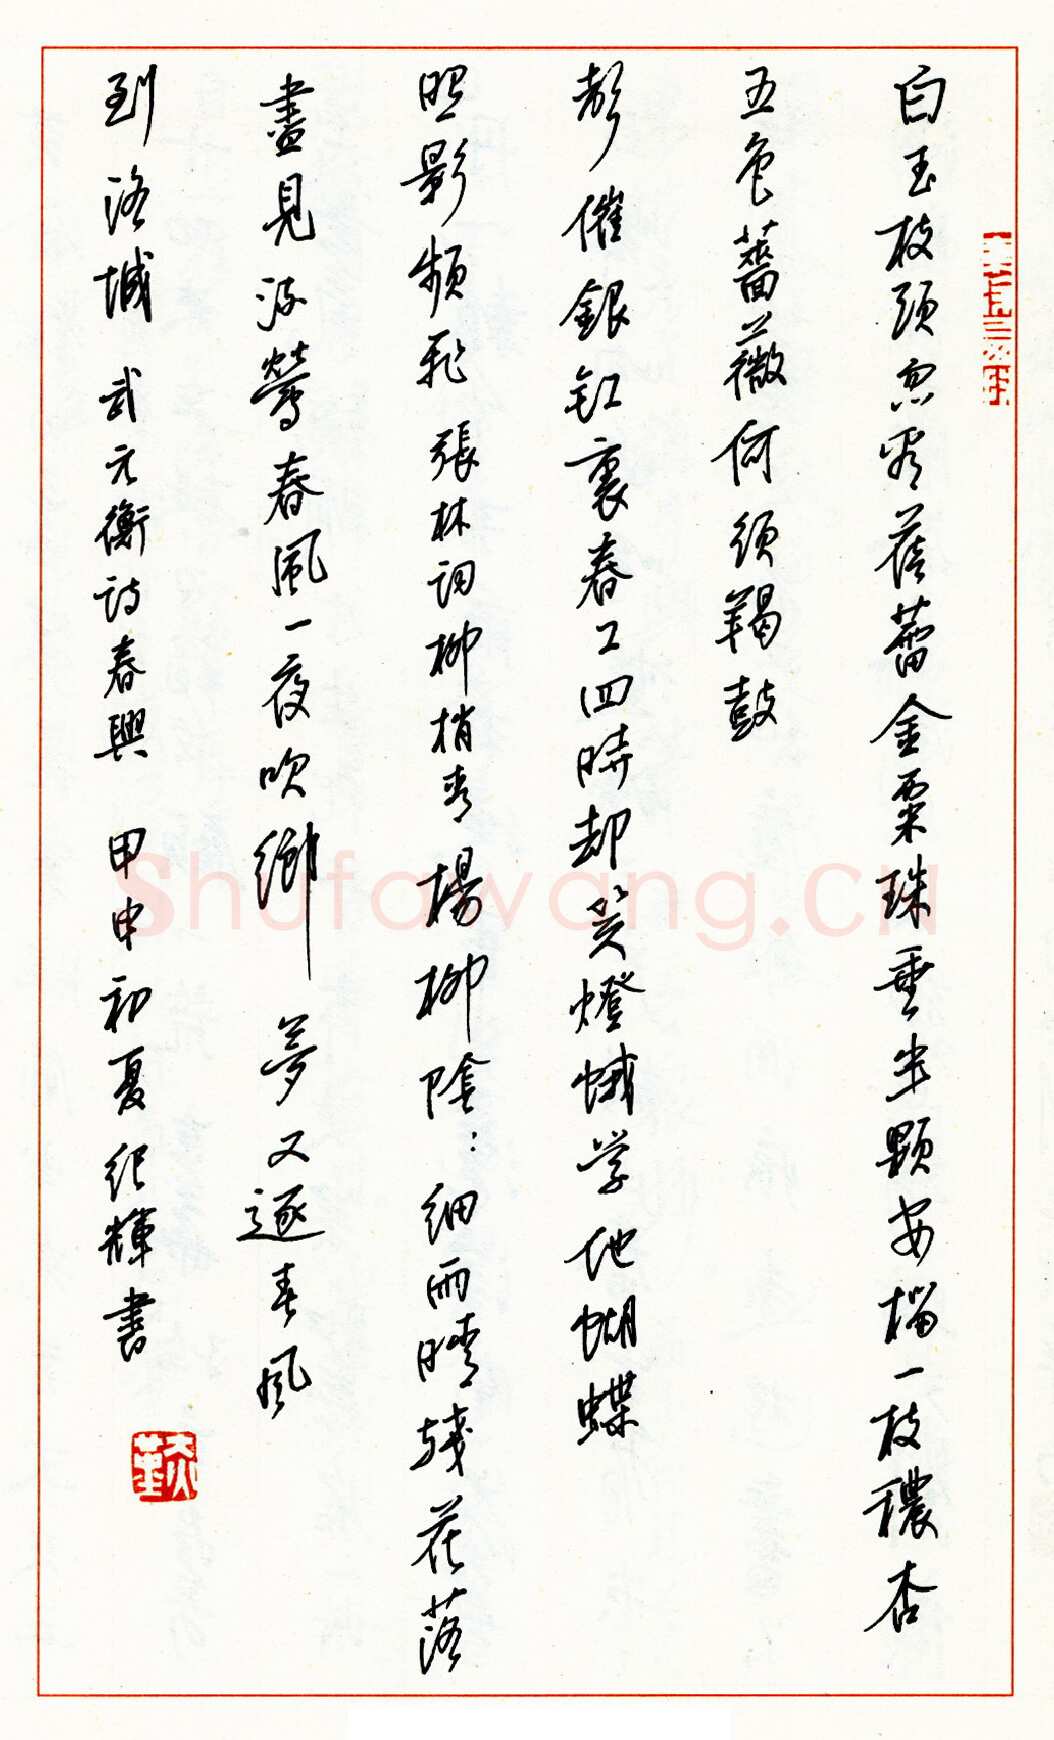 白玉枝頭忽看蓓蕾金粟珠垂半顆安榴一枝穠杏
五色薔薇何須羯鼓
声催銀釭裏春工四時却笑燈蛾学他蝴蝶
照影頻飛 張林词柳梢青 楊柳陰:细雨晴残花落
盡見流鶯春風一夜吹鄉夢又逐春風
到洛城 武元衡诗春興 甲申初夏纪輝書
Shufawang.CN